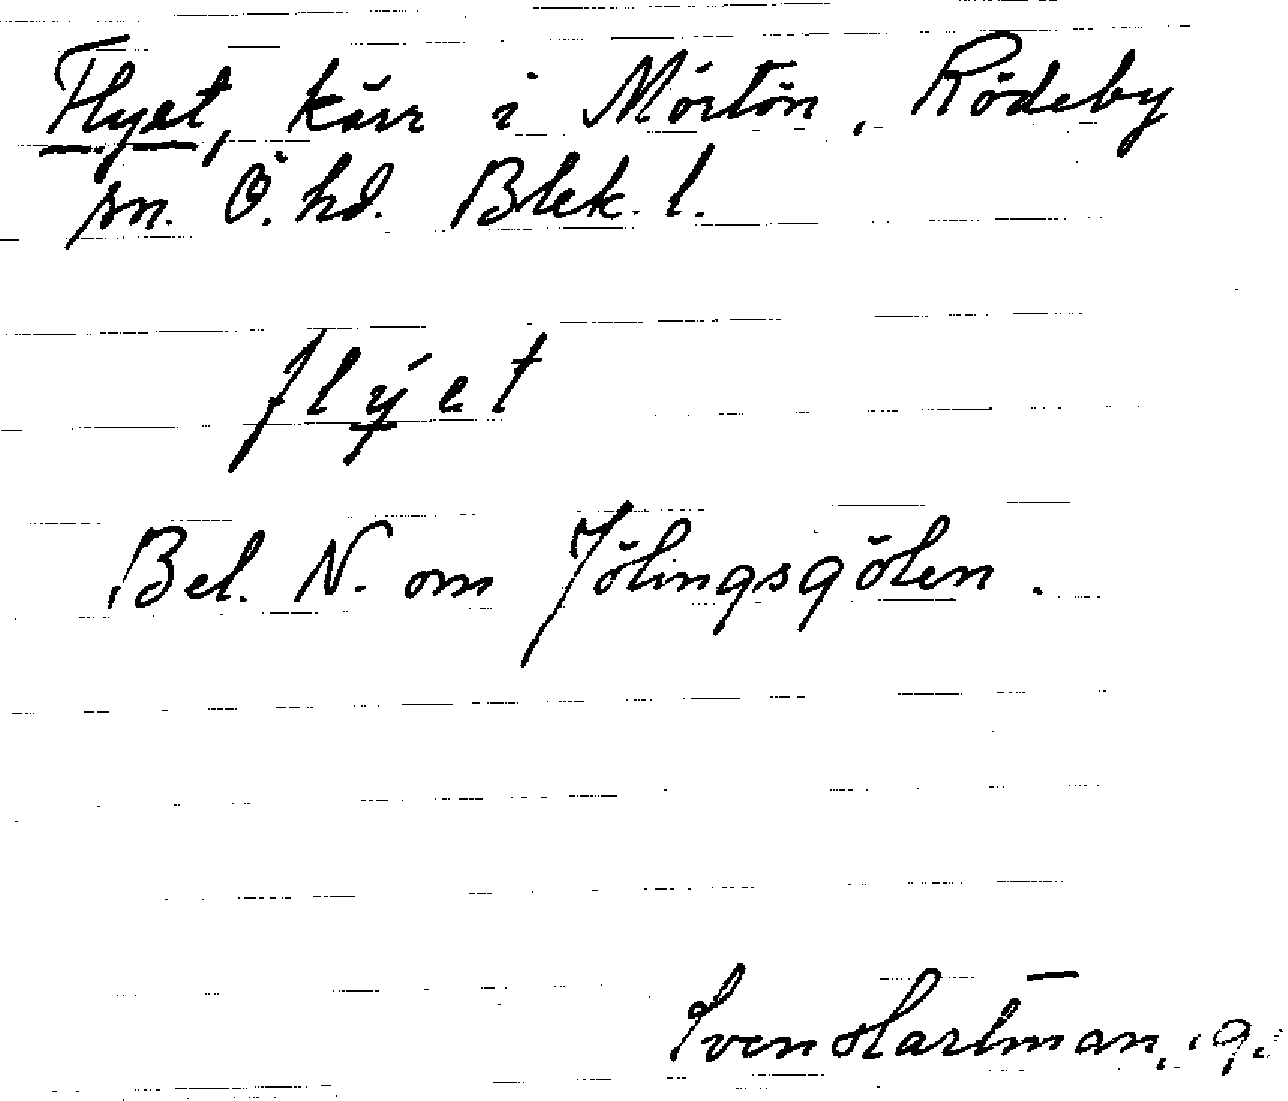 Flyet, kärr i Mörtön, Rödeby
sn. Ö. hd. Blek. l.
flýet
Bel. N. om Jölingsgölen.
Sven Hartman, 19